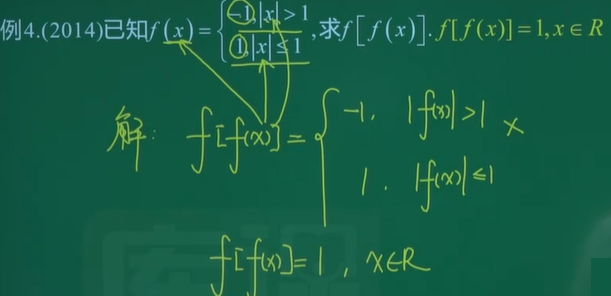 例4.(2014)已知f(x)={-1,|x|>1 ,求f[f(x)].f[f(x)]=1,x∈R
1,|x|≤1
解: f[f(x)]={-1, |f(x)|>1 ×
1, |f(x)|≤1
f[f(x)]=1, x∈R